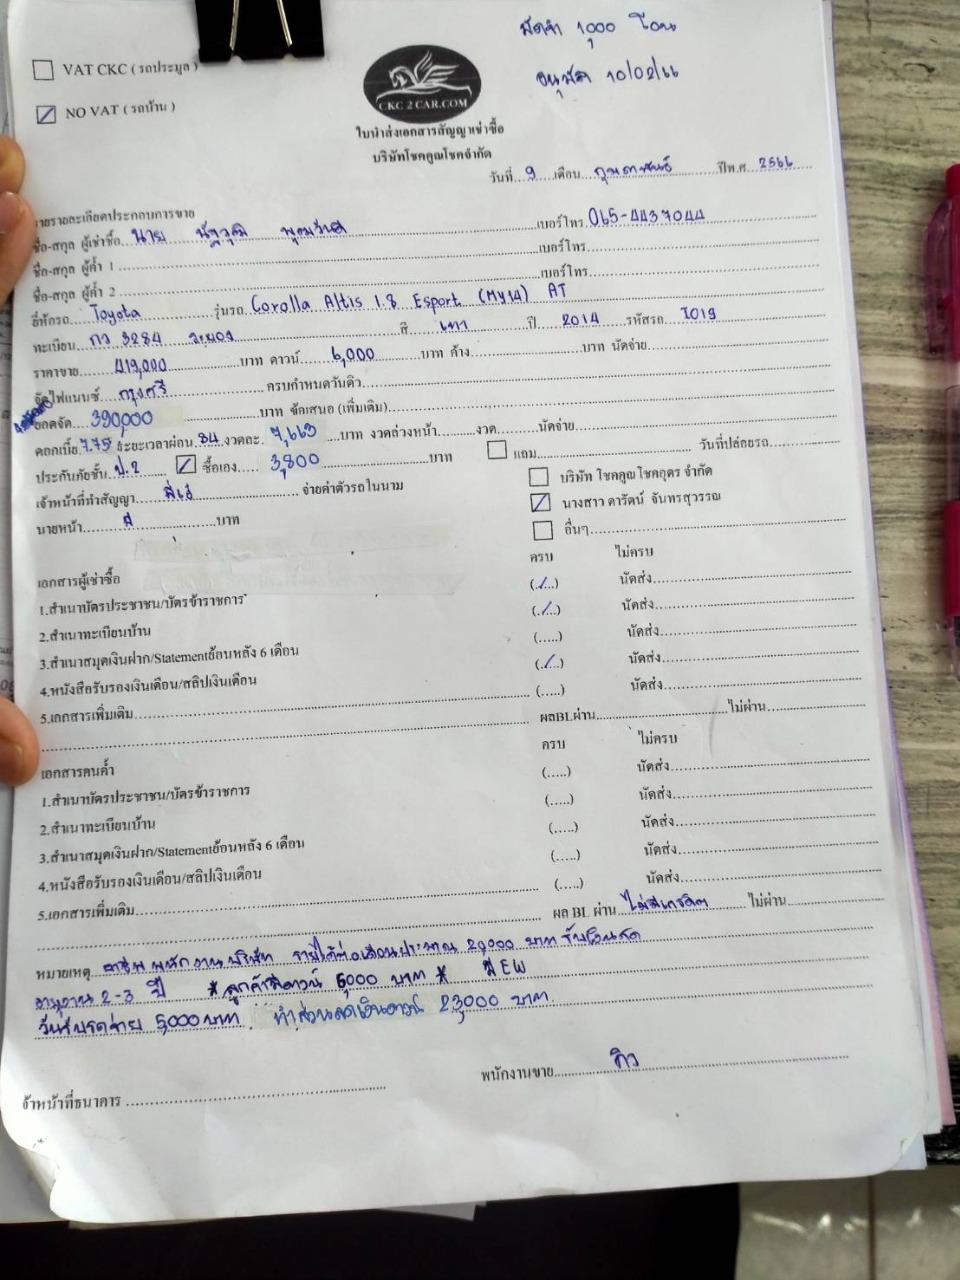 มัดจำ 1,000 โอน
อนุมัติ 10/02/66
VAT CKC ( รถประมูล )
NO VAT ( รถบ้าน )
CKC 2 CAR.COM
ใบนำส่งเอกสารสัญญาเช่าซื้อ
บริษัทโชคคูณโชคจำกัด
วันที่ 9 เดือน กุมภาพันธ์ ปีพ.ศ. 2566
รายละเอียดประกอบการขาย
ชื่อ-สกุล ผู้เช่าซื้อ นาย ณัฐวุฒิ เบอร์โทร 065-4437044
ชื่อ-สกุล ผู้ค้ำ 1 เบอร์โทร
ชื่อ-สกุล ผู้ค้ำ 2 เบอร์โทร
ยี่ห้อรถ Toyota รุ่นรถ Corolla Altis 1.8 Esport (My14) AT
ทะเบียน กว 3284 ระยอง สี เทา ปี 2014 รหัสรถ I019
ราคาขาย 419,000 บาท ดาวน์ 6,000 บาท ค้าง บาท นัดจ่าย
จัดไฟแนนซ์ กรุงศรี ครบกำหนดวันคิว
ยอดจัด 390,000 บาท จัดเสนอ (เพิ่มเติม)
ดอกเบี้ย 7.75 ระยะเวลาผ่อน 84 งวดละ 7,663 บาท งวดล่วงหน้า งวด นัดจ่าย
ประกันภัยชั้น ป.2 ซื้อเอง 3,800 บาท แถม วันที่ปล่อยรถ
เจ้าหน้าที่ทำสัญญา จ่ายค่าตัวรถในนาม บริษัท โชคคูณโชคอุดร จำกัด
นางสาว ดารัตน์ จันทรสุวรรณ
นายหน้า บาท อื่นๆ
เอกสารผู้เช่าซื้อ ครบ ไม่ครบ
1.สำเนาบัตรประชาชน/บัตรข้าราชการ (./..) นัดส่ง
2.สำเนาทะเบียนบ้าน (./..) นัดส่ง
3.สำเนาสมุดเงินฝาก/Statementย้อนหลัง 6 เดือน (.....) นัดส่ง
4.หนังสือรับรองเงินเดือน/สลิปเงินเดือน (./..) นัดส่ง
5.เอกสารเพิ่มเติม (.....) นัดส่ง
ผลBLผ่าน ไม่ผ่าน
เอกสารคนค้ำ ครบ ไม่ครบ
1.สำเนาบัตรประชาชน/บัตรข้าราชการ (.....) นัดส่ง
2.สำเนาทะเบียนบ้าน (.....) นัดส่ง
3.สำเนาสมุดเงินฝาก/Statementย้อนหลัง 6 เดือน (.....) นัดส่ง
4.หนังสือรับรองเงินเดือน/สลิปเงินเดือน (.....) นัดส่ง
5.เอกสารเพิ่มเติม (.....) นัดส่ง
ผล BL ผ่าน ไม่มีเครดิต ไม่ผ่าน
หมายเหตุ อาชีพ พนักงานบริษัท รายได้ต่อเดือนประมาณ 20,000 บาท รับเงินสด
อายุงาน 2-3 ปี *ลูกค้ามีดาวน์ 6,000 บาท* มี EW
วันรับรถจ่าย 5,000 บาท ทำส่วนลดเงินดาวน์ 23,000 บาท
พนักงานขาย คิว
เจ้าหน้าที่ธนาคาร